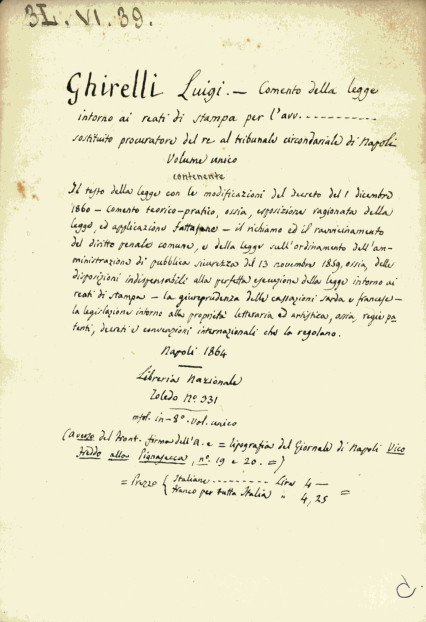 3L. VI. 39.
Ghirelli Luigi. — Comento della legge
intorno ai reati di stampa per l'avv. - - - - - - - - - - -
sostituto procuratore del re al tribunale circondariale di Napoli
Volume unico
contenente
Il testo della legge con le modificazioni del decreto del 1 dicembre
1860 — Comento teorico-pratico, ossia, esposizione ragionata della
legge, ed applicazione fattasene — il richiamo ed il ravvicinamento
del diritto penale comune, e della legge sull'ordinamento dell'am-
ministrazione di pubblica sicurezza del 13 novembre 1859, ossia, delle
disposizioni indispensabili alla perfetta esecuzione della legge intorno ai
reati di stampa — la giureprudenza delle cassazioni sarda e francese —
la legislazione intorno alla proprietà letteraria ed artistica, ossia, regie pa
tenti, decreti e convenzioni internazionali che la regolano.
Napoli 1864
Libreria Nazionale
Toledo Nº 331
in-8º- Vol. unico
(a verso del front. firma dell'A. e = tipografia del Giornale di Napoli Vico
freddo alla Pignasecca, nº. 19 e 20. =)
= Prezzo { Italiane - - - - - - - - Lire 4 —
franco per tutta Italia " 4, 25 =